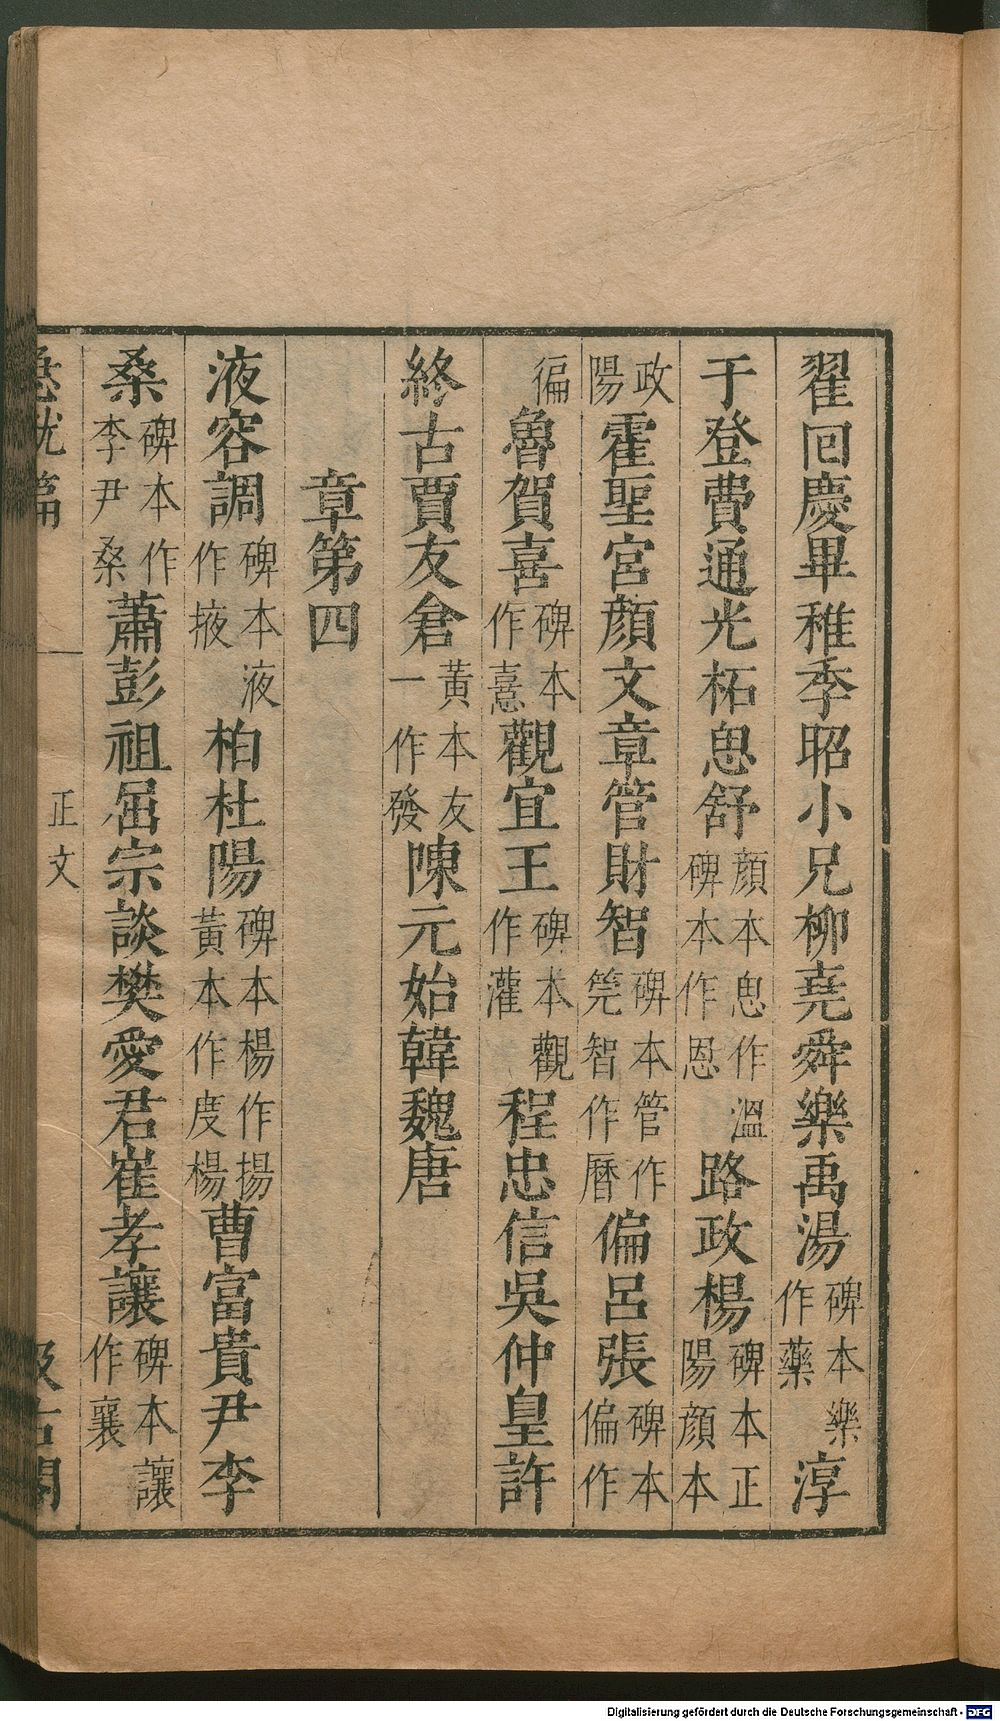 翟回慶畢稚季昭小兄柳堯舜樂禹湯碑本樂作藥淳
于登費通光柘恖舒顏本恖作溫碑本作恩路政楊碑本正陽顏本
政陽霍聖宮顏文章管財智碑本管作筦智作曆偏呂張碑本偏作
徧魯賀喜碑本作憙觀宜王碑本觀作灌程忠信吳仲皇許
終古賈友倉黃本友一作發陳元始韓魏唐
章第四
液容調碑本液作掖柏杜陽碑本楊作揚黃本作度楊曹富貴尹李
桑碑本作李尹桑蕭彭祖屈宗談樊愛君崔孝讓碑本讓作襄
急就篇 一 正文 汲古閣
Digitalisierung gefördert durch die Deutsche Forschungsgemeinschaft - DFG